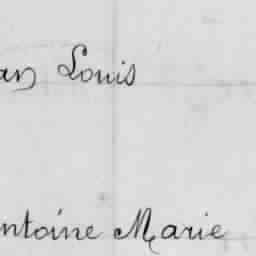 an Louis
ntoine Marie